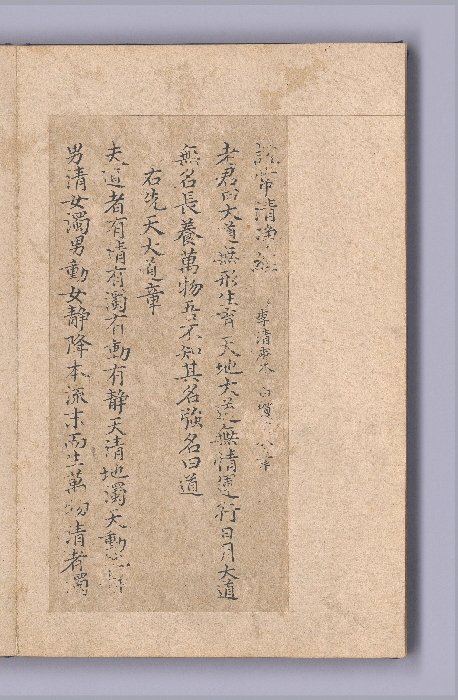 常清淨經 李清庵本 八章
老君曰大道無形生育天地大道無情運行日月大道
無名長養萬物吾不知其名強名曰道
右先天大道章
夫道者有清有濁有動有靜天清地濁天動地靜
男清女濁男動女靜降本流末而生萬物清者濁